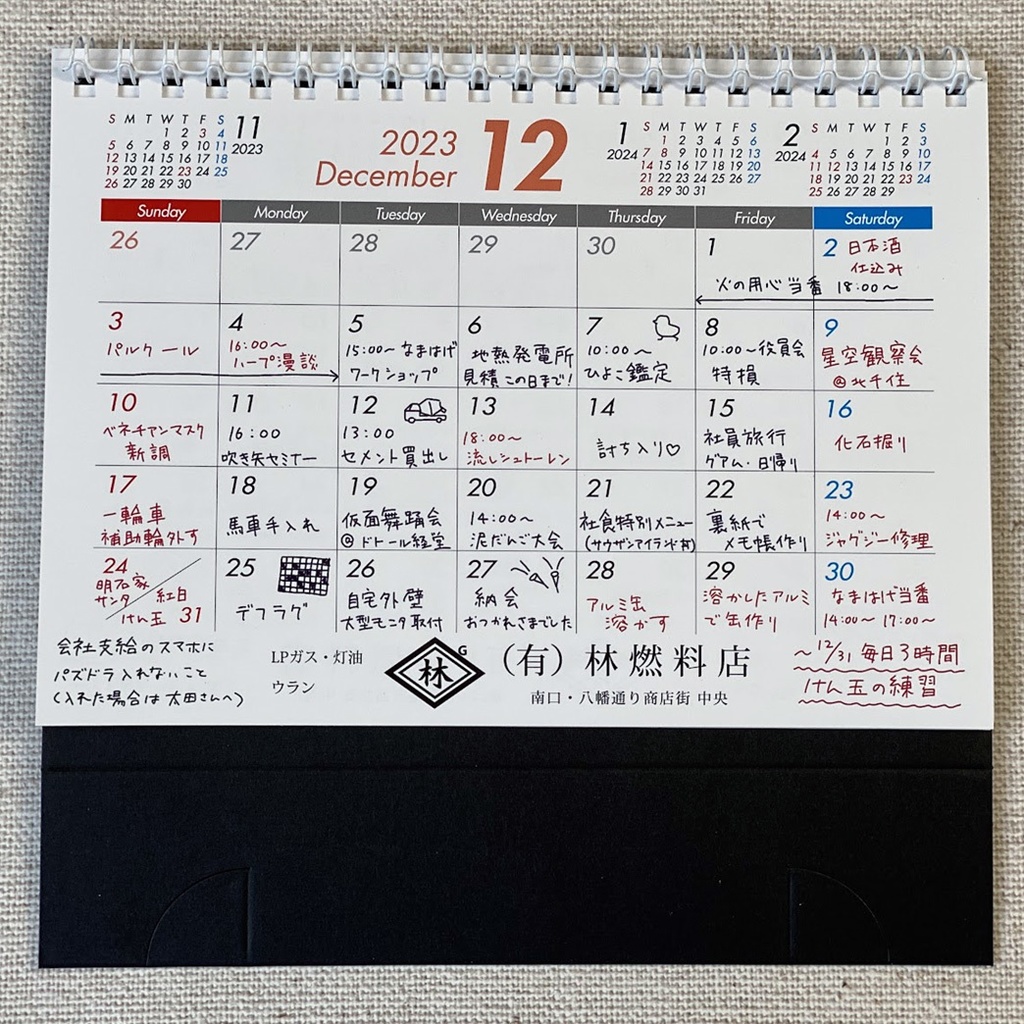 S M T W T F S
1 2 3 4
5 6 7 8 9 10 11
12 13 14 15 16 17 18
19 20 21 22 23 24 25
26 27 28 29 30
11
2023
2023
December
12
1
2024
S M T W T F S
1 2 3 4 5 6
7 8 9 10 11 12 13
14 15 16 17 18 19 20
21 22 23 24 25 26 27
28 29 30 31
2
2024
S M T W T F S
1 2 3
4 5 6 7 8 9 10
11 12 13 14 15 16 17
18 19 20 21 22 23 24
25 26 27 28 29
Sunday Monday Tuesday Wednesday Thursday Friday Saturday
26
27
28
29
30
1
火の用心当番
2 日本酒
仕込み
18:00～
3
パルクール
4
16:00～
ハープ漫談
5
15:00～なまはげ
ワークショップ
6
地熱発電所
見積この日まで!
7
10:00～
ひよこ鑑定
8
10:00～役員会
特損
9
星空観察会
@北千住
10
ベネチアンマスク
新調
11
16:00
吹き矢セミナー
12
13:00
セメント買出し
13
18:00～
流しシュトーレン
14
討ち入り♡
15
社員旅行
グアム・日帰り
16
化石掘り
17
一輪車
補助輪外す
18
馬車手入れ
19
仮面舞踏会
@ドトール経堂
20
14:00～
泥だんご大会
21
社食特別メニュー
(サウザンアイランド丼)
22
裏紙で
メモ帳作り
23
14:00～
ジャグジー修理
24
明石家
サンタ
紅白
けん玉 31
25
デフラグ
26
自宅外壁
大型モニタ取付
27
納会
おつかれさまでした
28
アルミ缶
溶かす
29
溶かしたアルミ
で缶作り
30
なまはげ当番
14:00～ 17:00～
会社支給のスマホに
パズドラ入れないこと
(入れた場合は太田さんへ)
LPガス・灯油
ウラン
林
G
(有)林燃料店
南口・八幡通り商店街 中央
～12/31 毎日3時間
けん玉の練習